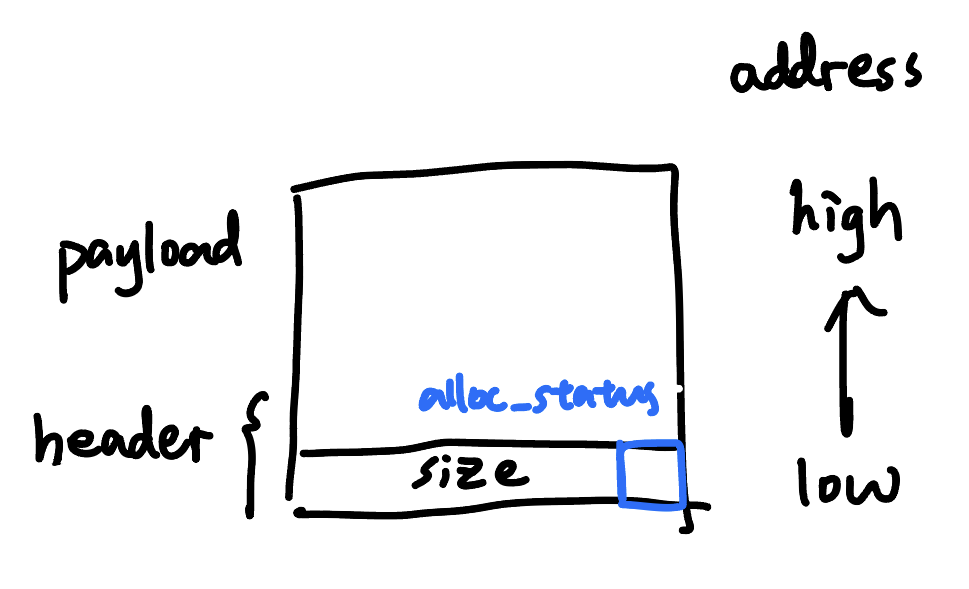 address
high
payload
alloc_status
header
size
low